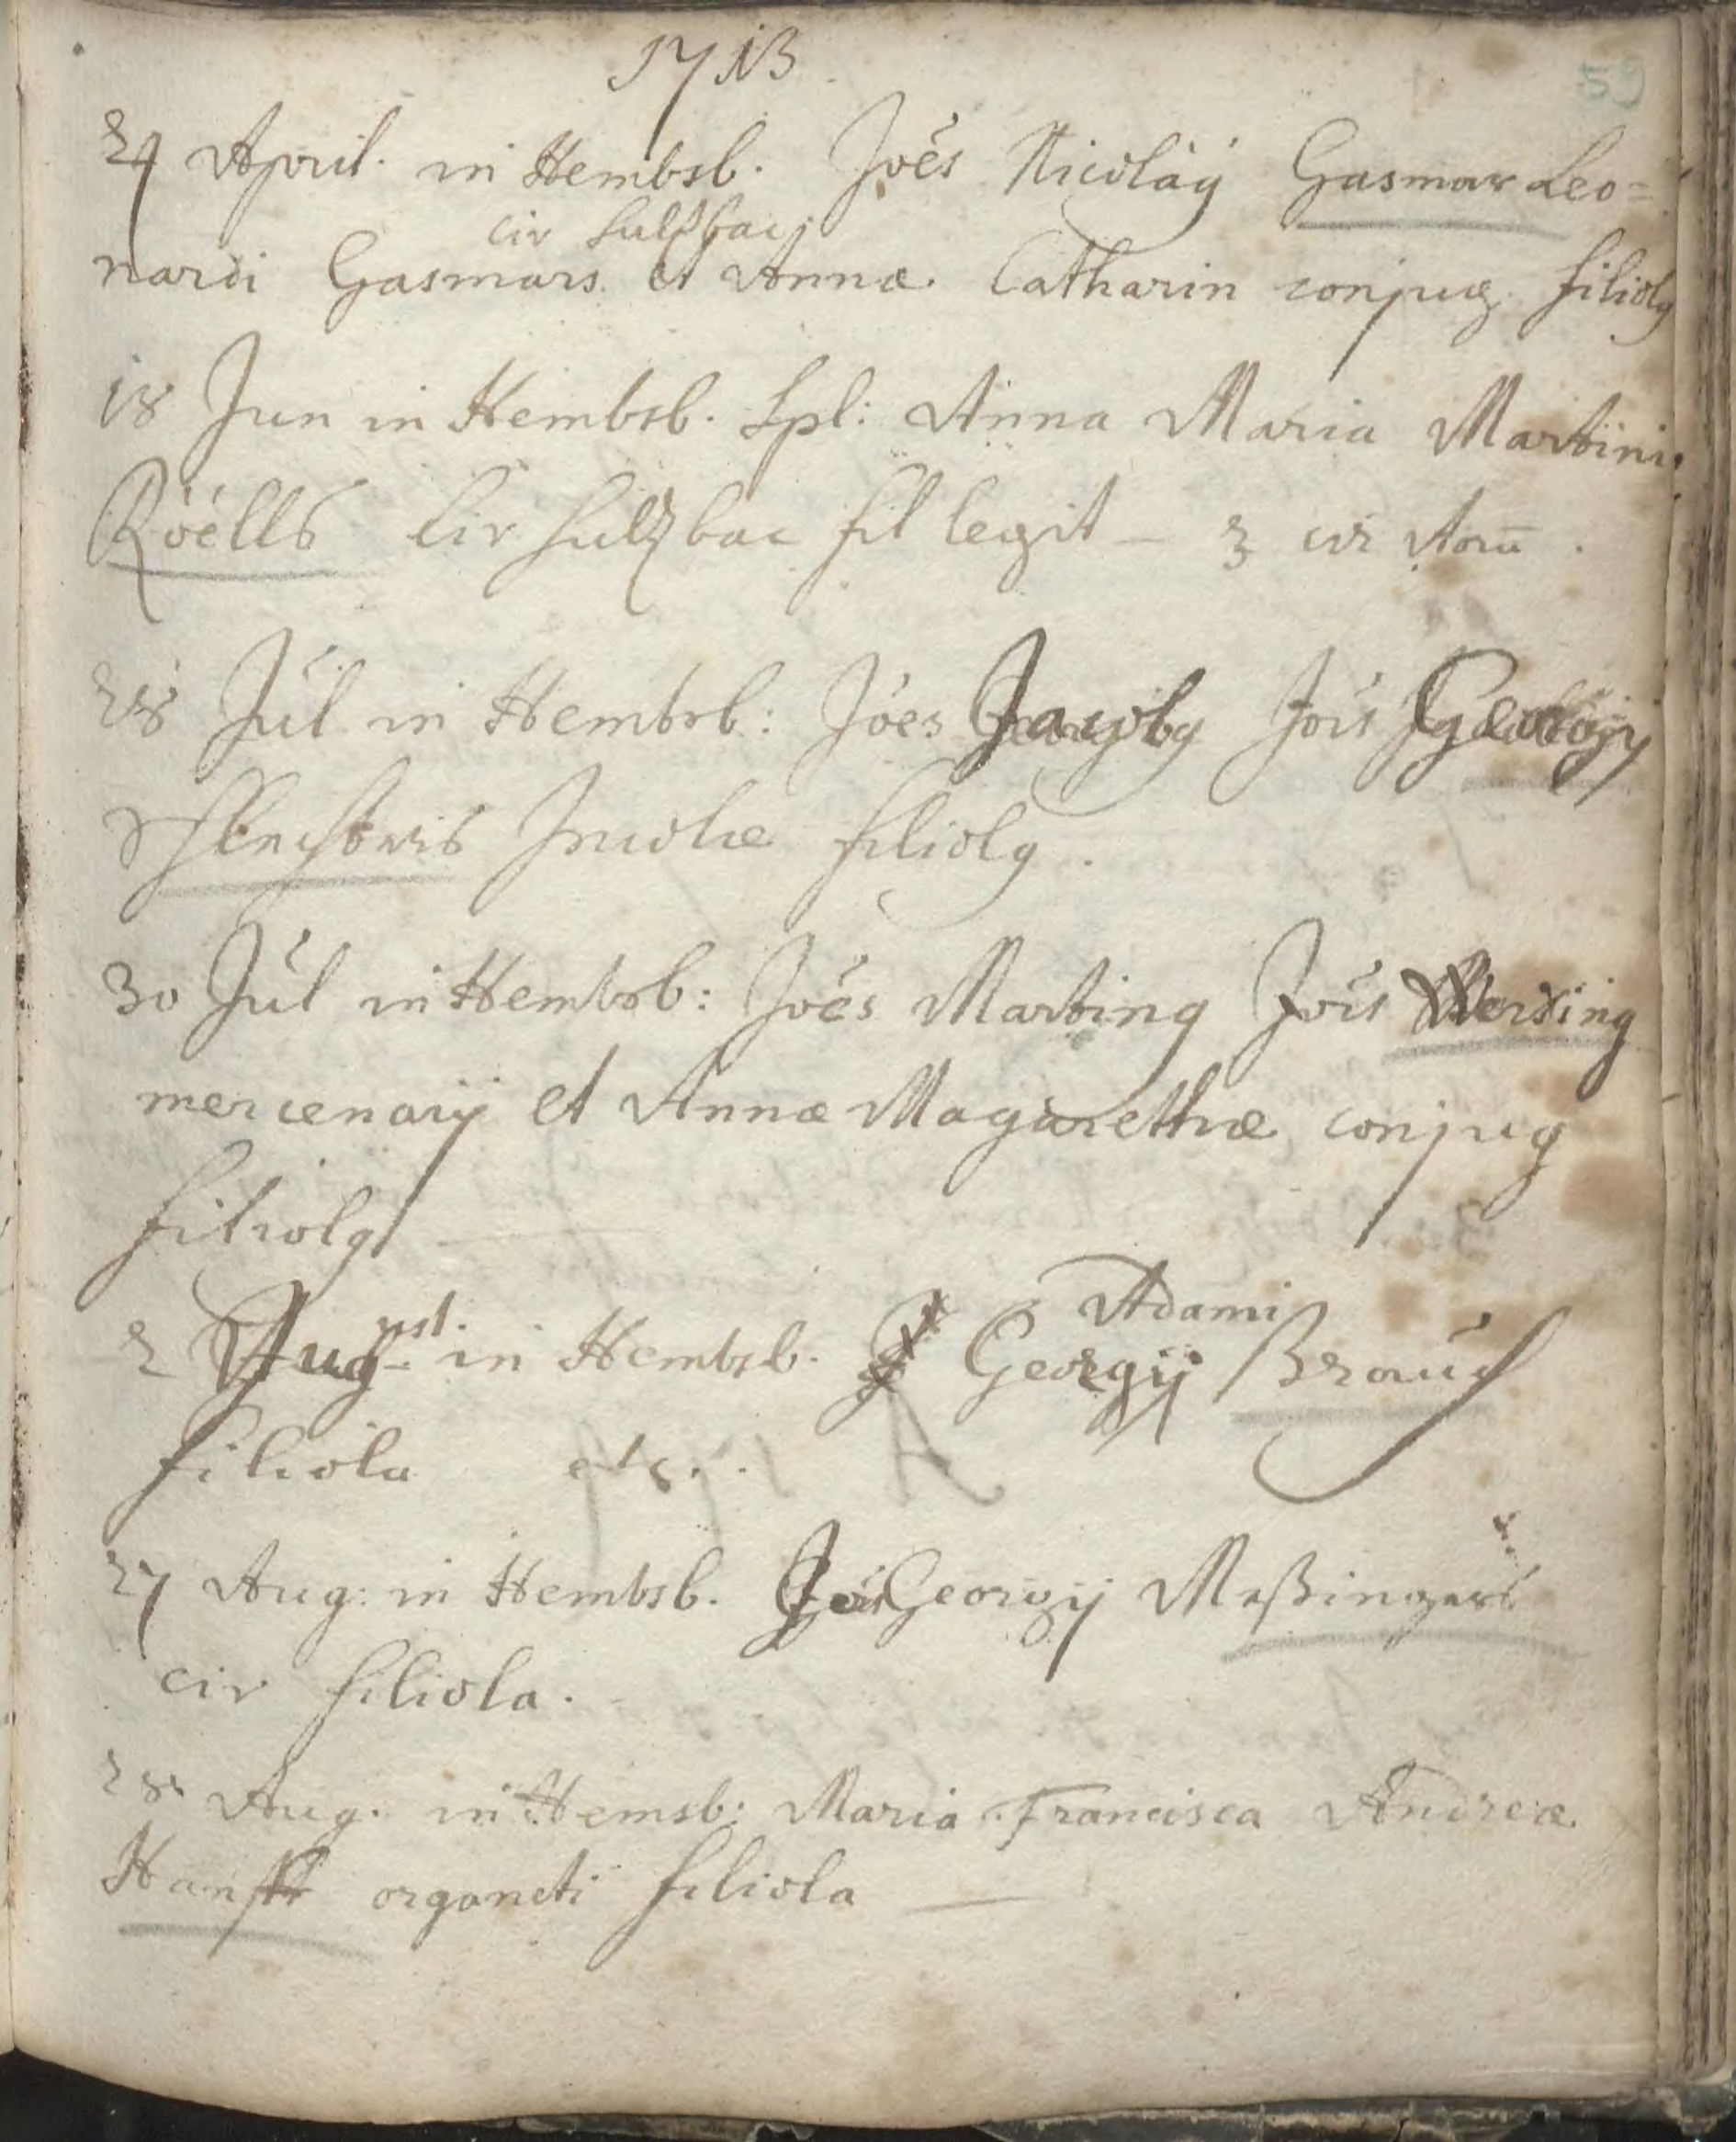 1713
59
24 April. in Hembsb. Joēs Nicolay Gasmar Leo=
civ Sultzbacj
nardi Gasmars et Annæ Catharin conjug filiolg
18 Jun in Hembsb. Spl: Anna Maria Martini
Röells Civ Sultzbac fil legit – 3 cir Aoru
28 Júl in Hembsb: Joes Jacobg Jois Georgy
Incolæ filiolg.
30 Júl in Hembsb: Joēs Marting Jois
mercenarij et Annæ Magarethæ conjug
filiolg
Adami
2 August. in Hembsb. Georgij Brauch
filiola etc.
27 Aug: in Hembsb. Jois Georgij Meßingers
civ filiola.
28. Aug. in Hemsb: Maria Francisca Andreæ
organcti filiola —